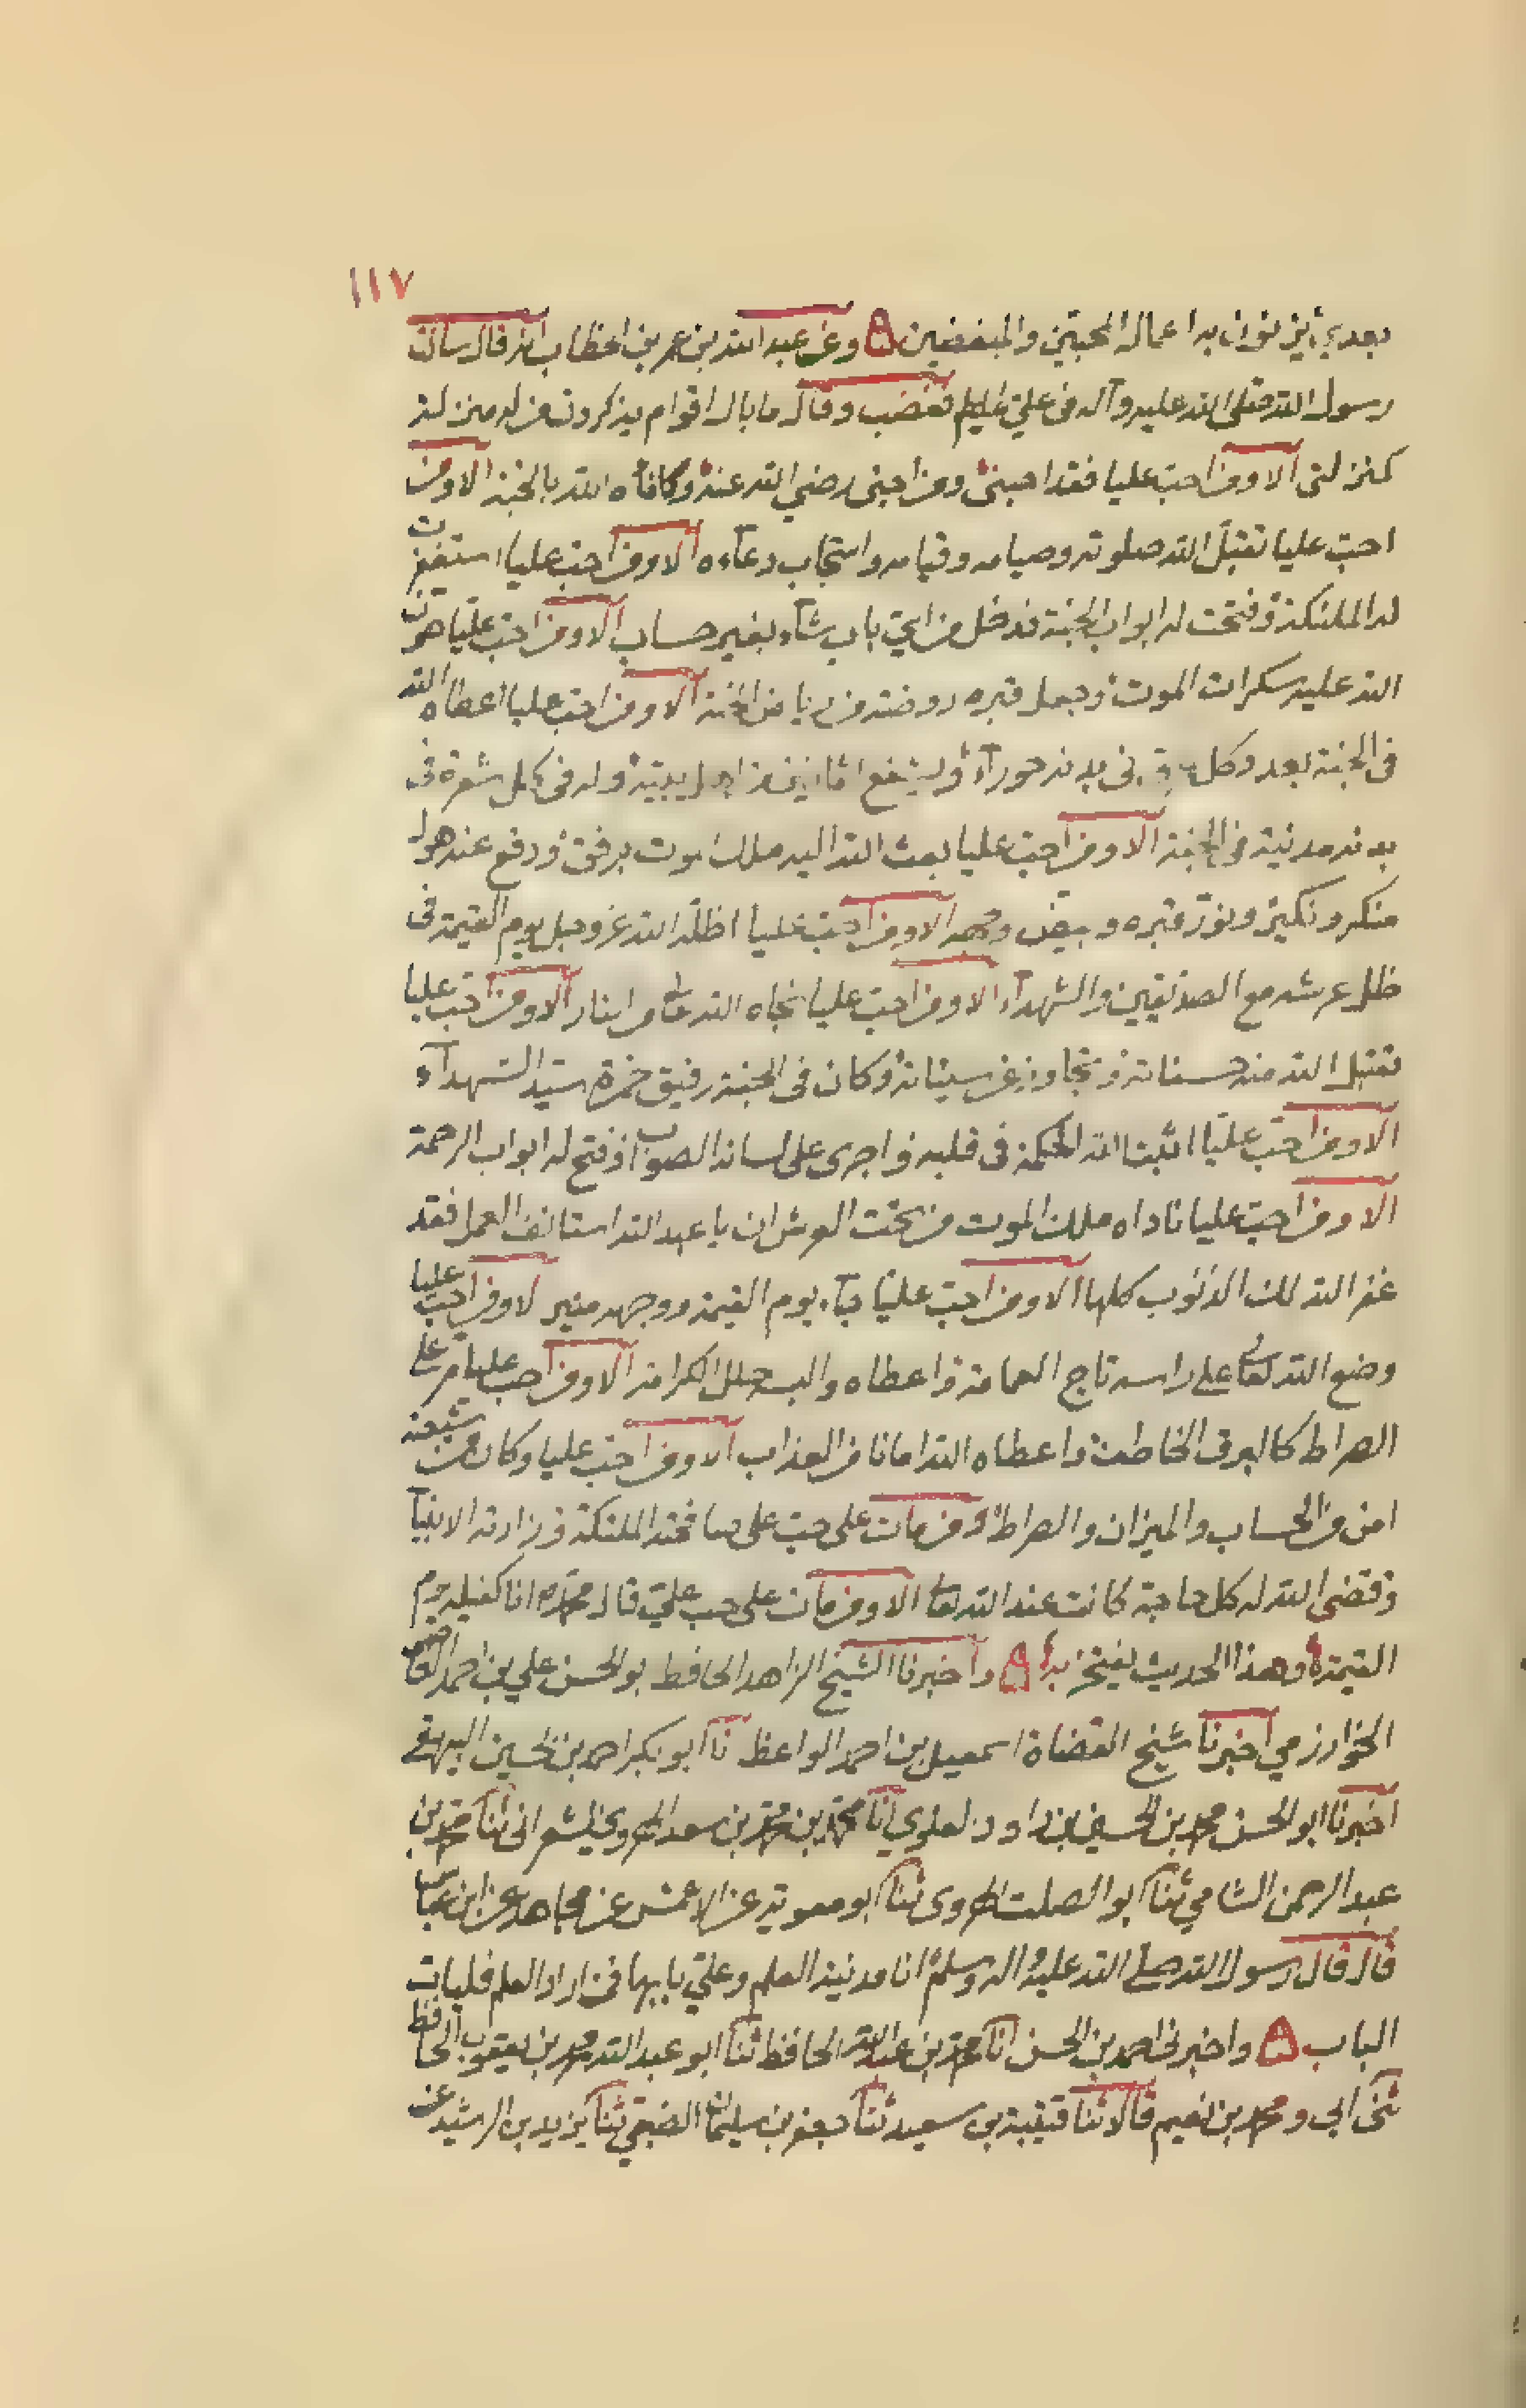 ١١٧
بعدي يزنون به اعمال المحبين والمبغضين ۵ وعن عبد الله بن عمر بن الخطاب انه قال سالت
رسول الله صلى الله عليه وآله في علي عليه السلم فغضب وقال ما بال اقوام يذكرون من له منزلة
كمنزلتي الا ومن احب عليا فقد احبني ومن احبني رضي الله عنه وكافأه الله بالجنة الا ومن
احب عليا تقبل الله صلوته وصيامه وقيامه واستجاب دعاءه الا ومن احب عليا استغفرت
له الملئكة وفتحت له ابواب الجنة فدخل من اي باب شاء بغير حساب الا ومن احب عليا هون
الله عليه سكرات الموت وجعل قبره روضة من رياض الجنة الا ومن احب عليا اعطاه الله
في الجنة بعدد كل عرق في بدنه حوراء ويشفع في ثمانين من اهل بيته وله في كل شعرة في
بدنه مدينة في الجنة الا ومن احب عليا بعث الله اليه ملك الموت برفق ودفع عنه هول
منكر ونكير ونور قبره وبيض وجهه الا ومن احب عليا اظله الله عز وجل يوم القيمة في
ظل عرشه مع الصديقين والشهداء الا ومن احب عليا نجاه الله تعالى من النار الا ومن احب عليا
تقبل الله منه حسناته وتجاوز عن سيئاته وكان في الجنة رفيق حمزة سيد الشهداء
الا ومن احب عليا اثبت الله الحكمة في قلبه واجرى على لسانه الصواب وفتح له ابواب الرحمة
الا ومن احب عليا ناداه ملك الموت من تحت العرش ان يا عبد الله استانف العمل فقد
غفر الله لك الذنوب كلها الا ومن احب عليا جاء يوم القيمة ووجهه منير الا ومن احب عليا
وضع الله تعالى على راسه تاج الكرامة واعطاه والبسه حلل الكرامة الا ومن احب عليا مر على
الصراط كالبرق الخاطف واعطاه الله امانا من العذاب الا ومن احب عليا وكان من شيعته
امن من الحساب والميزان والصراط ومن مات على حب علي صافحته الملئكة وزارته الانبياء
وقضى الله له كل حاجة كانت عند الله تعالى الا ومن مات على حب علي قال محمد انا كفيله يوم
القيمة وهذا الحديث يفتخر به ۵ واخبرنا الشيخ الزاهد الحافظ بو الحسن علي بن احمد العاصمي
الخوارزمي اخبرنا شيخ القضاة اسمعيل بن احمد الواعظ نا ابو بكر احمد بن الحسين البيهقي
اخبرنا ابو الحسن محمد بن الحسين بن داود العلوي انا محمد بن محمد بن سعد الهروي الشعراني ثنا محمد بن
عبد الرحمن الشامي ثنا ابو الصلت الهروي ثنا ابو معوية عن الاعمش عن مجاهد عن ابن عباس
قال قال رسول الله صلى الله عليه واله وسلم انا مدينة العلم وعلي بابها فمن اراد العلم فليات
الباب ۵ واخبرني احمد بن الحسن انا محمد بن عبد الله الحافظ ثنا ابو عبد الله محمد بن يعقوب الحافظ
ثنى ابي ومحمد بن نعيم قالا ثنا قتيبة بن سعيد ثنا جعفر بن سليمان الضبعي ثنا يزيد بن الرشيد عن